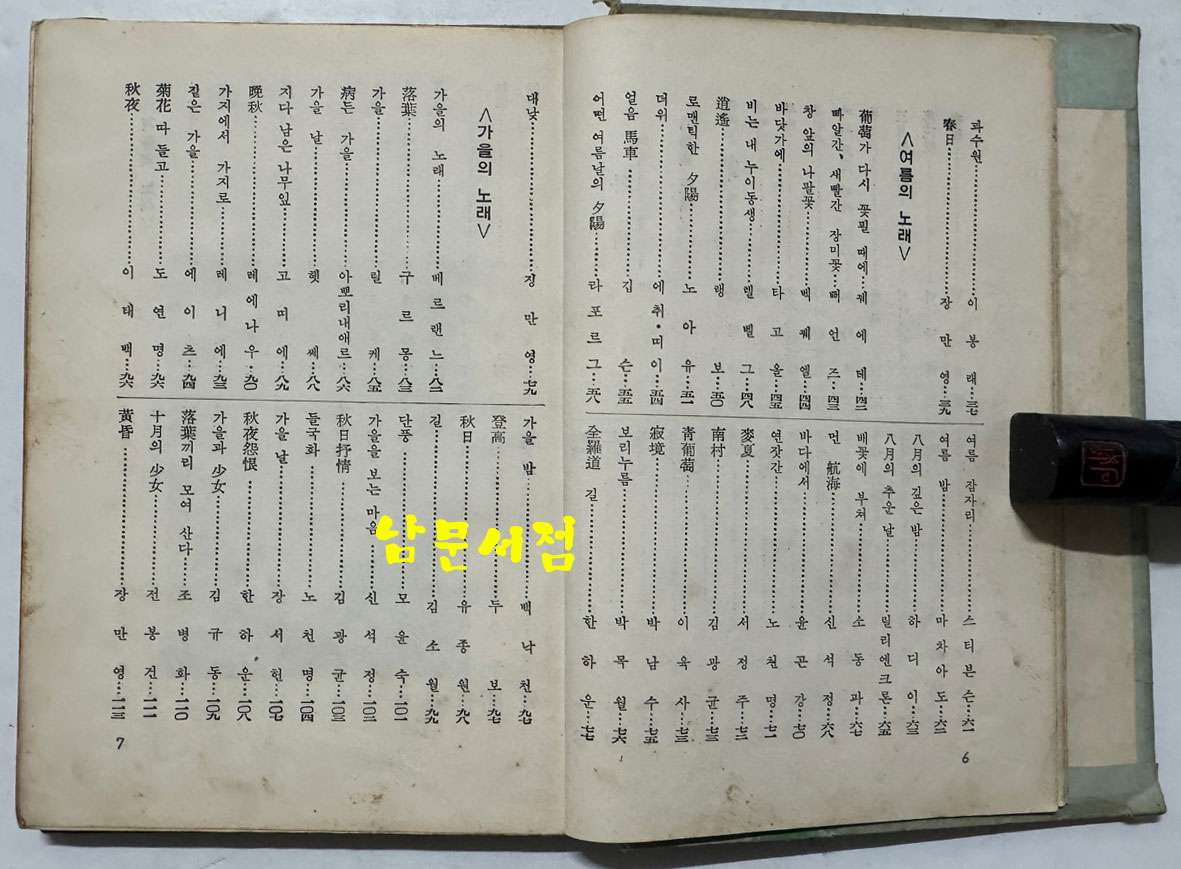 과수원……이봉래…三七
春日……장만영…三九
<여름의 노래>
葡萄가 다시 꽃필 때에…꿰에테…四二
빠알간, 새빨간 장미꽃…뻐언즈…四三
창 앞의 나팔꽃……벡퀘엘…四四
바닷가에……타고올…四五
비는 내 누이동생……렐벨그…四八
逍遙……랭보…五〇
로맨틱한 夕陽……노아유…五二
더위……에취·띠이…五四
얼음 馬車……김슨…五五
어떤 여름날의 夕陽……라포르그…五八
여름 잠자리……스티븐슨…六一
여름 밤……마차아도…六二
八月의 깊은 밤……하디이…六三
八月의 추운 날……릴리엔크론…六五
배꽃에 부쳐……소동파…六七
먼 航海……신석정…六八
바다에서……윤곤강…七〇
연잣간……노천명…七一
麥夏……서정주…七二
南村……김광균…七三
靑葡萄……이육사…七三
寂境……박남수…七五
보리누름……박목월…七六
全羅道 길……한하운…七七
6
대낮……장만영…七九
<가을의 노래>
가을의 노래……베르랜느…八二
落葉……구르몽…八三
가을……릴케…八五
病든 가을……아뽀리내애르…八六
가을 날……헷쎄…八八
지다 남은 나무잎……고띠에…八九
晩秋……레에나우…九〇
가지에서 가지로……레니에…九三
짙은 가을……에이츠…九四
菊花 따 들고……도연명…九六
秋夜……이태백…九六
가을 밤……백낙천…九七
登高……두보…九七
秋日……유종원…九八
길……김소월…九九
단풍……모윤숙…一〇一
가을을 보는 마음……신석정…一〇二
秋日抒情……김광균…一〇三
들국화……노천명…一〇四
가을 날……장서헌…一〇七
秋夜怨恨……한하운…一〇八
가을과 少女……김규동…一〇九
落葉끼리 모여 산다……조병화…一一〇
十月의 少女……전봉건…一一一
黃昏……장만영…一一三
7
남문서점